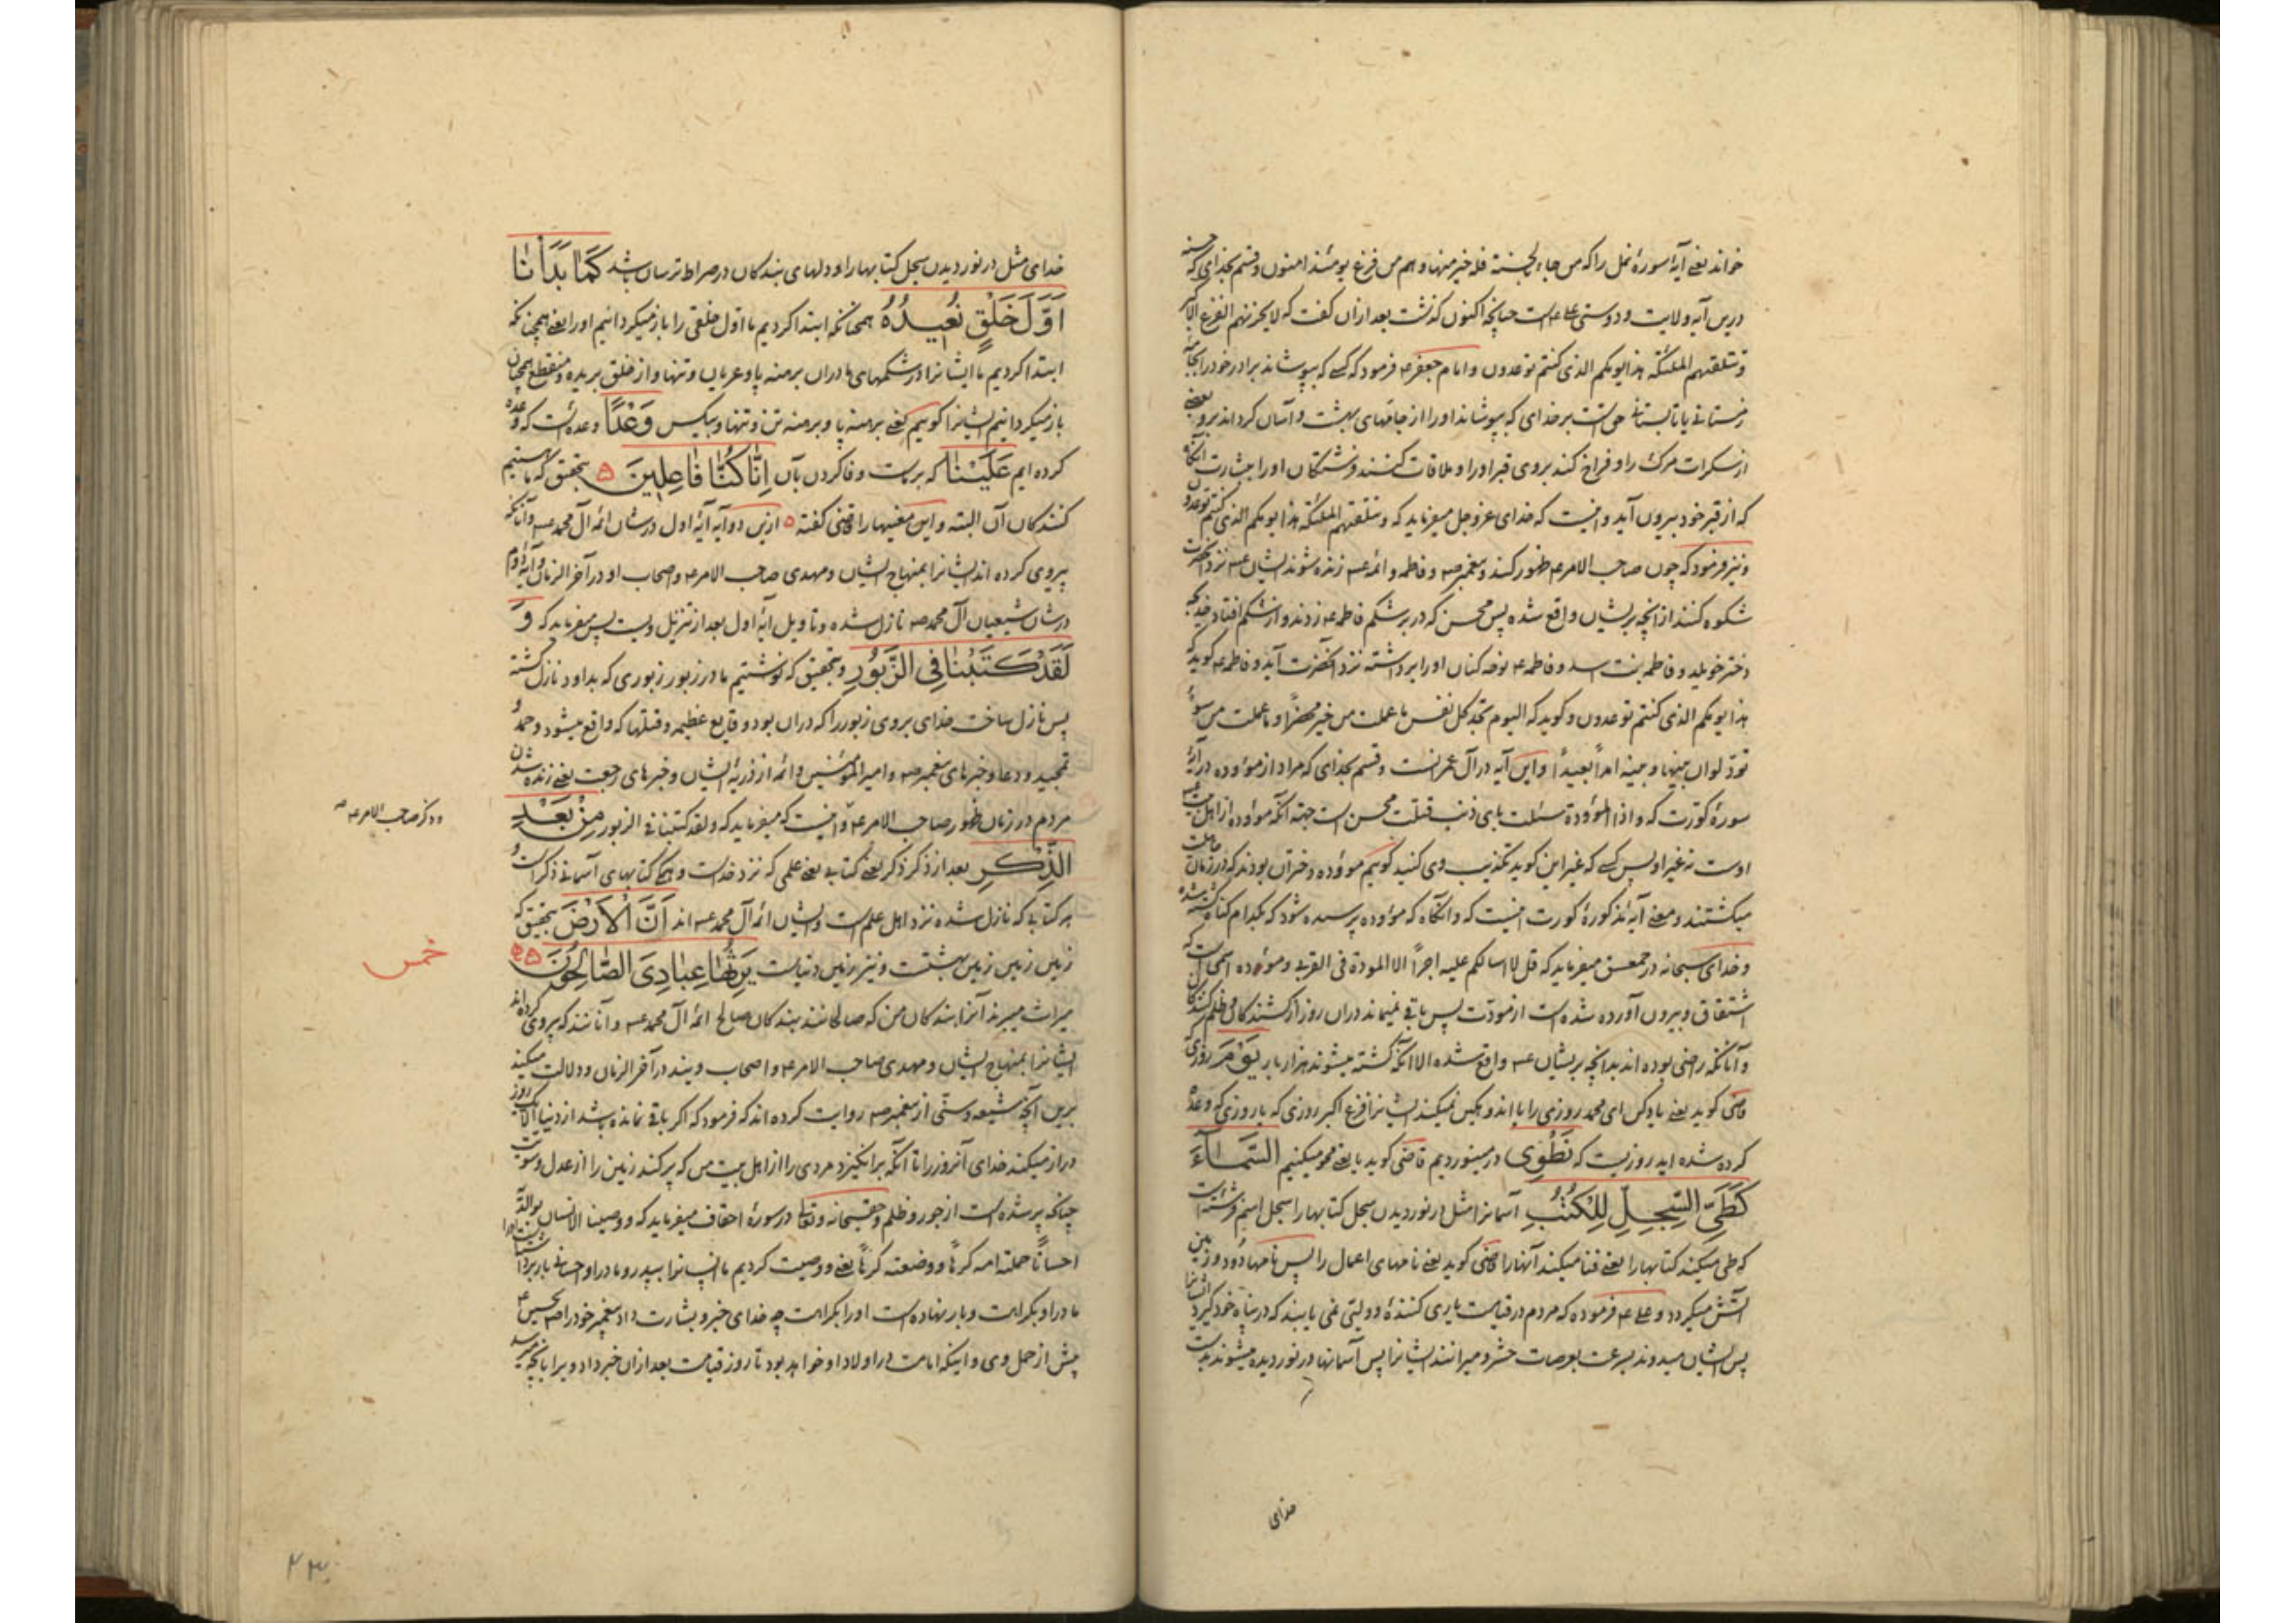 خواند یعنے آیهٔ سورهٔ نمل را که من جاء بالحسنة فله خیر منها و هم من فزع یومئذ امنون و قسم بخدای که
درین آیه ولایت و دوستی علی ع است چنانچه اکنون کذشت بعد ازان کفت که لا یحزنهم الفزع الاکبر
و تتلقیهم الملئکة هذا یومکم الذی کنتم توعدون و امام جعفر ع فرمود که کسے که بپوشاند برادر خود را جامهٔ
زمستانے یا تابستانے حق است بر خدای که بپوشاند او را از جامهای بهشت و آسان کرداند برو بعضے
از سکرات مرک را و فراخ کند بروی قبر او را و ملاقات کنند فرشتکان او را ببشارت آنکاه
که از قبر خود بیرون آید و اینست که خدای عز و جل میفرماید که و تتلقیهم الملئکة هذا یومکم الذی کنتم توعدون
و نیز فرمود که چون صاحب الامر ع ظهور کند و پیغمبر ص و فاطمه و ائمه ع زنده شوند ایشان ع نزد آنحضرت
شکوه کنند از آنچه بریشان واقع شده پس محسن که در بر شکم فاطمه ع زدند و از شکم افتاد خدیجه
دختر خویلد و فاطمه بنت اسد و فاطمه ع نوحه کنان او را برداشته نزد آنحضرت آید و فاطمه ع کوید که
هذا یومکم الذی کنتم توعدون و کوید که الیوم تجد کل نفس ما عملت من خیر محضرًا و ما عملت من سوءٍ
تودّ لو ان بینها و بینه امدًا بعیدًا و این آیه در آل عمرانست و قسم بخدای که مراد از موؤده در آیهٔ
سورهٔ کورت که و اذا الموؤدة سئلت بای ذنب قتلت محسن است جهة آنکه موؤده از اهل
اوست نه غیر او پس کسے که غیر این کوید تکذیب وی کنید کوییم موؤده دختران بودند که در زمان جاهلیت
میکشتند و معنے آیهٔ مذکورهٔ کورت اینست که و آنکاه که موؤده پرسیده شود که بکدام کناه کشته شده
و خدای سبحانه در حمعسق میفرماید که قل لا اسالکم علیه اجرًا الا المودة فی القربی و موؤده اسمی است که
اشتقاق و بیرون آورده شده است از مودت پس باقے نمیماند دران روز از کشندکان و ظلم کنندکان
و آنانکه راضی بوده اند بدانچه بریشان ع واقع شده الا آنکه کشته میشوند هزار بار یَوْمَ روزی که
قاضی کوید یعنے یاد کن ای محمد روزی را یا اندوهکین نمیکند ایشانرا فزع اکبر روزی که یا روزی که وعده
کرده شده اید روزیست که نَطْوِی در مینوردیم قاضی کوید یا یعنے محو میکنیم السَّمَآءَ
کَطَیِّ السِّجِلِّ لِلْکُتُبِ آسمانرا مثل در نوردیدن سجل کتابها را سجل اسم فرشته ایست
که طی میکند کتابها را یعنے فنا میکند آنها را قاضی کوید یعنے نامهای اعمال را پس نامها دود و زمین
آتش میکردد و علی ع فرموده که مردم در قیامت یاری کنندهٔ و دولتی نمی یابند که در پناه خود کیرد ایشانرا
پس ایشان میدوند بسرعت بعرصات حشر و میرانند ایشانرا پس آسمانها در نوردیده میشوند بدست
خدای
خدای مثل در نوردیدن سجل کتابها را و دلهای بندکان در صراط ترسان باشد کَمَا بَدَأْنَا
اَوَّلَ خَلْقٍ نُعِیدُهُ همچنانکه ابتدا کردیم ما اول خلقی را باز میکردانیم او را یعنے همچنانکه
ابتدا کردیم ما ایشانرا در شکمهای مادران برهنه پا و عریان و تنها و از خلق بریده و منقطع همچنان
باز میکردانیم ایشانرا کوییم یعنے برهنه پا و برهنه تن و تنها و بیکس وَعْدًا وعده است که وعده
کرده ایم عَلَیْنَا که بر ماست وفا کردن بآن اِنَّا کُنَّا فَاعِلِینَ ۵ بتحقیق که ما هستیم
کنندکان آن البته و این معنیها را قاضی کفته ۵ ازین دو آیه آیهٔ اول در شان ائمه آل محمد ع و آنانکه
پیروی کرده اند ایشانرا بمنهاج ایشان و مهدی صاحب الامر ع و اصحاب او در آخر الزمان و آیهٔ دوم
در شان شیعیان آل محمد ص نازل شده و تاویل آیهٔ اول بعد از تنزیل ویست پس میفرماید که وَ
لَقَدْ کَتَبْنَا فِی الزَّبُورِ و بتحقیق که نوشتیم ما در زبور زبوری که بداود نازل کشته
پس نازل ساخت خدای بروی زبور را که دران بود وقایع عظیمه و فتنها که واقع میشود و حمد و
تمجید و دعا و خبرهای پیغمبر ص و امیر المؤمنین و ائمه از ذریهٔ ایشان و خبرهای رجعت یعنے زنده شدن
مردم در زمان ظهور صاحب الامر ع و اینست که میفرماید که و لقد کتبنا فی الزبور مِنْ بَعْدِ
و ذکر صاحب الامر ع ص
الذِّکْرِ بعد از ذکر ذکر یعنے کتابے یعنے علمی که نزد خداست و همهٔ کتابهای آسمانے ذکر است و
هر کتابی که نازل شده نزد اهل علم است و ایشان ائمه آل محمد ع اند اَنَّ الْاَرْضَ بتحقیق که
خمس
زمین زمین زمین بهشتست و نیز زمین دنیاست یَرِثُهَا عِبَادِیَ الصَّالِحُونَ ۵
میراث میبرند آنرا بندکان من که صالحانند بندکان صالح ائمه آل محمد ع و آنانند که پیروی کرده اند
ایشانرا بمنهاج ایشان و مهدی صاحب الامر ع و اصحاب ویند در آخر الزمان و دلالت میکند
برین آنچه شیعه و سنّی از پیغمبر ص روایت کرده اند که فرمود که اکر باقی نمانده باشد از دنیا الا یک روز
دراز میکند خدای آنروز را تا آنکه برانکیزد مردی را از اهل بیت من که پر کند زمین را از عدل و سویت
چنانکه پر شده است از جور و ظلم و حق سبحانه و تعالی در سورهٔ احقاف میفرماید که و وصینا الانسان بوالدیه
احسانًا حملته امه کرهًا و وضعته کرهًا یعنے و وصیت کردیم ما انسانرا بپدر و مادر او احسانے بار برداشت او را
مادر او بکراهت و بار نهاده است او را بکراهت چه خدای خبر و بشارت داد پیغمبر خود را ص بحسین ع
پیش از حمل وی و اینکه امامت در اولاد او خواهد بود تا روز قیامت بعد ازان خبر داد ویرا بآنچه میرسد